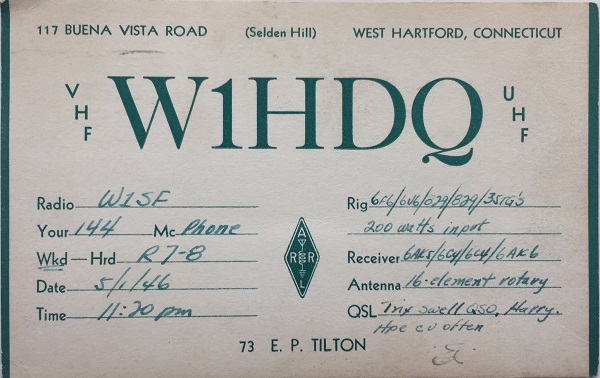 117 BUENA VISTA ROAD (Selden Hill) WEST HARTFORD, CONNECTICUT
VHF W1HDQ UHF
Radio W1SF
Your 144 Mc Phone
Wkd—Hrd R7-8
Date 5/1/46
Time 11:20 pm
Rig 6F6/6V6/829/829/35TG's
200 watts input
Receiver 6AK5/6C4/6C4/6AK6
Antenna 16-element rotary
QSL Tnx swell QSO, Harry.
Hpe cu often
A
R R
L
73 E. P. TILTON